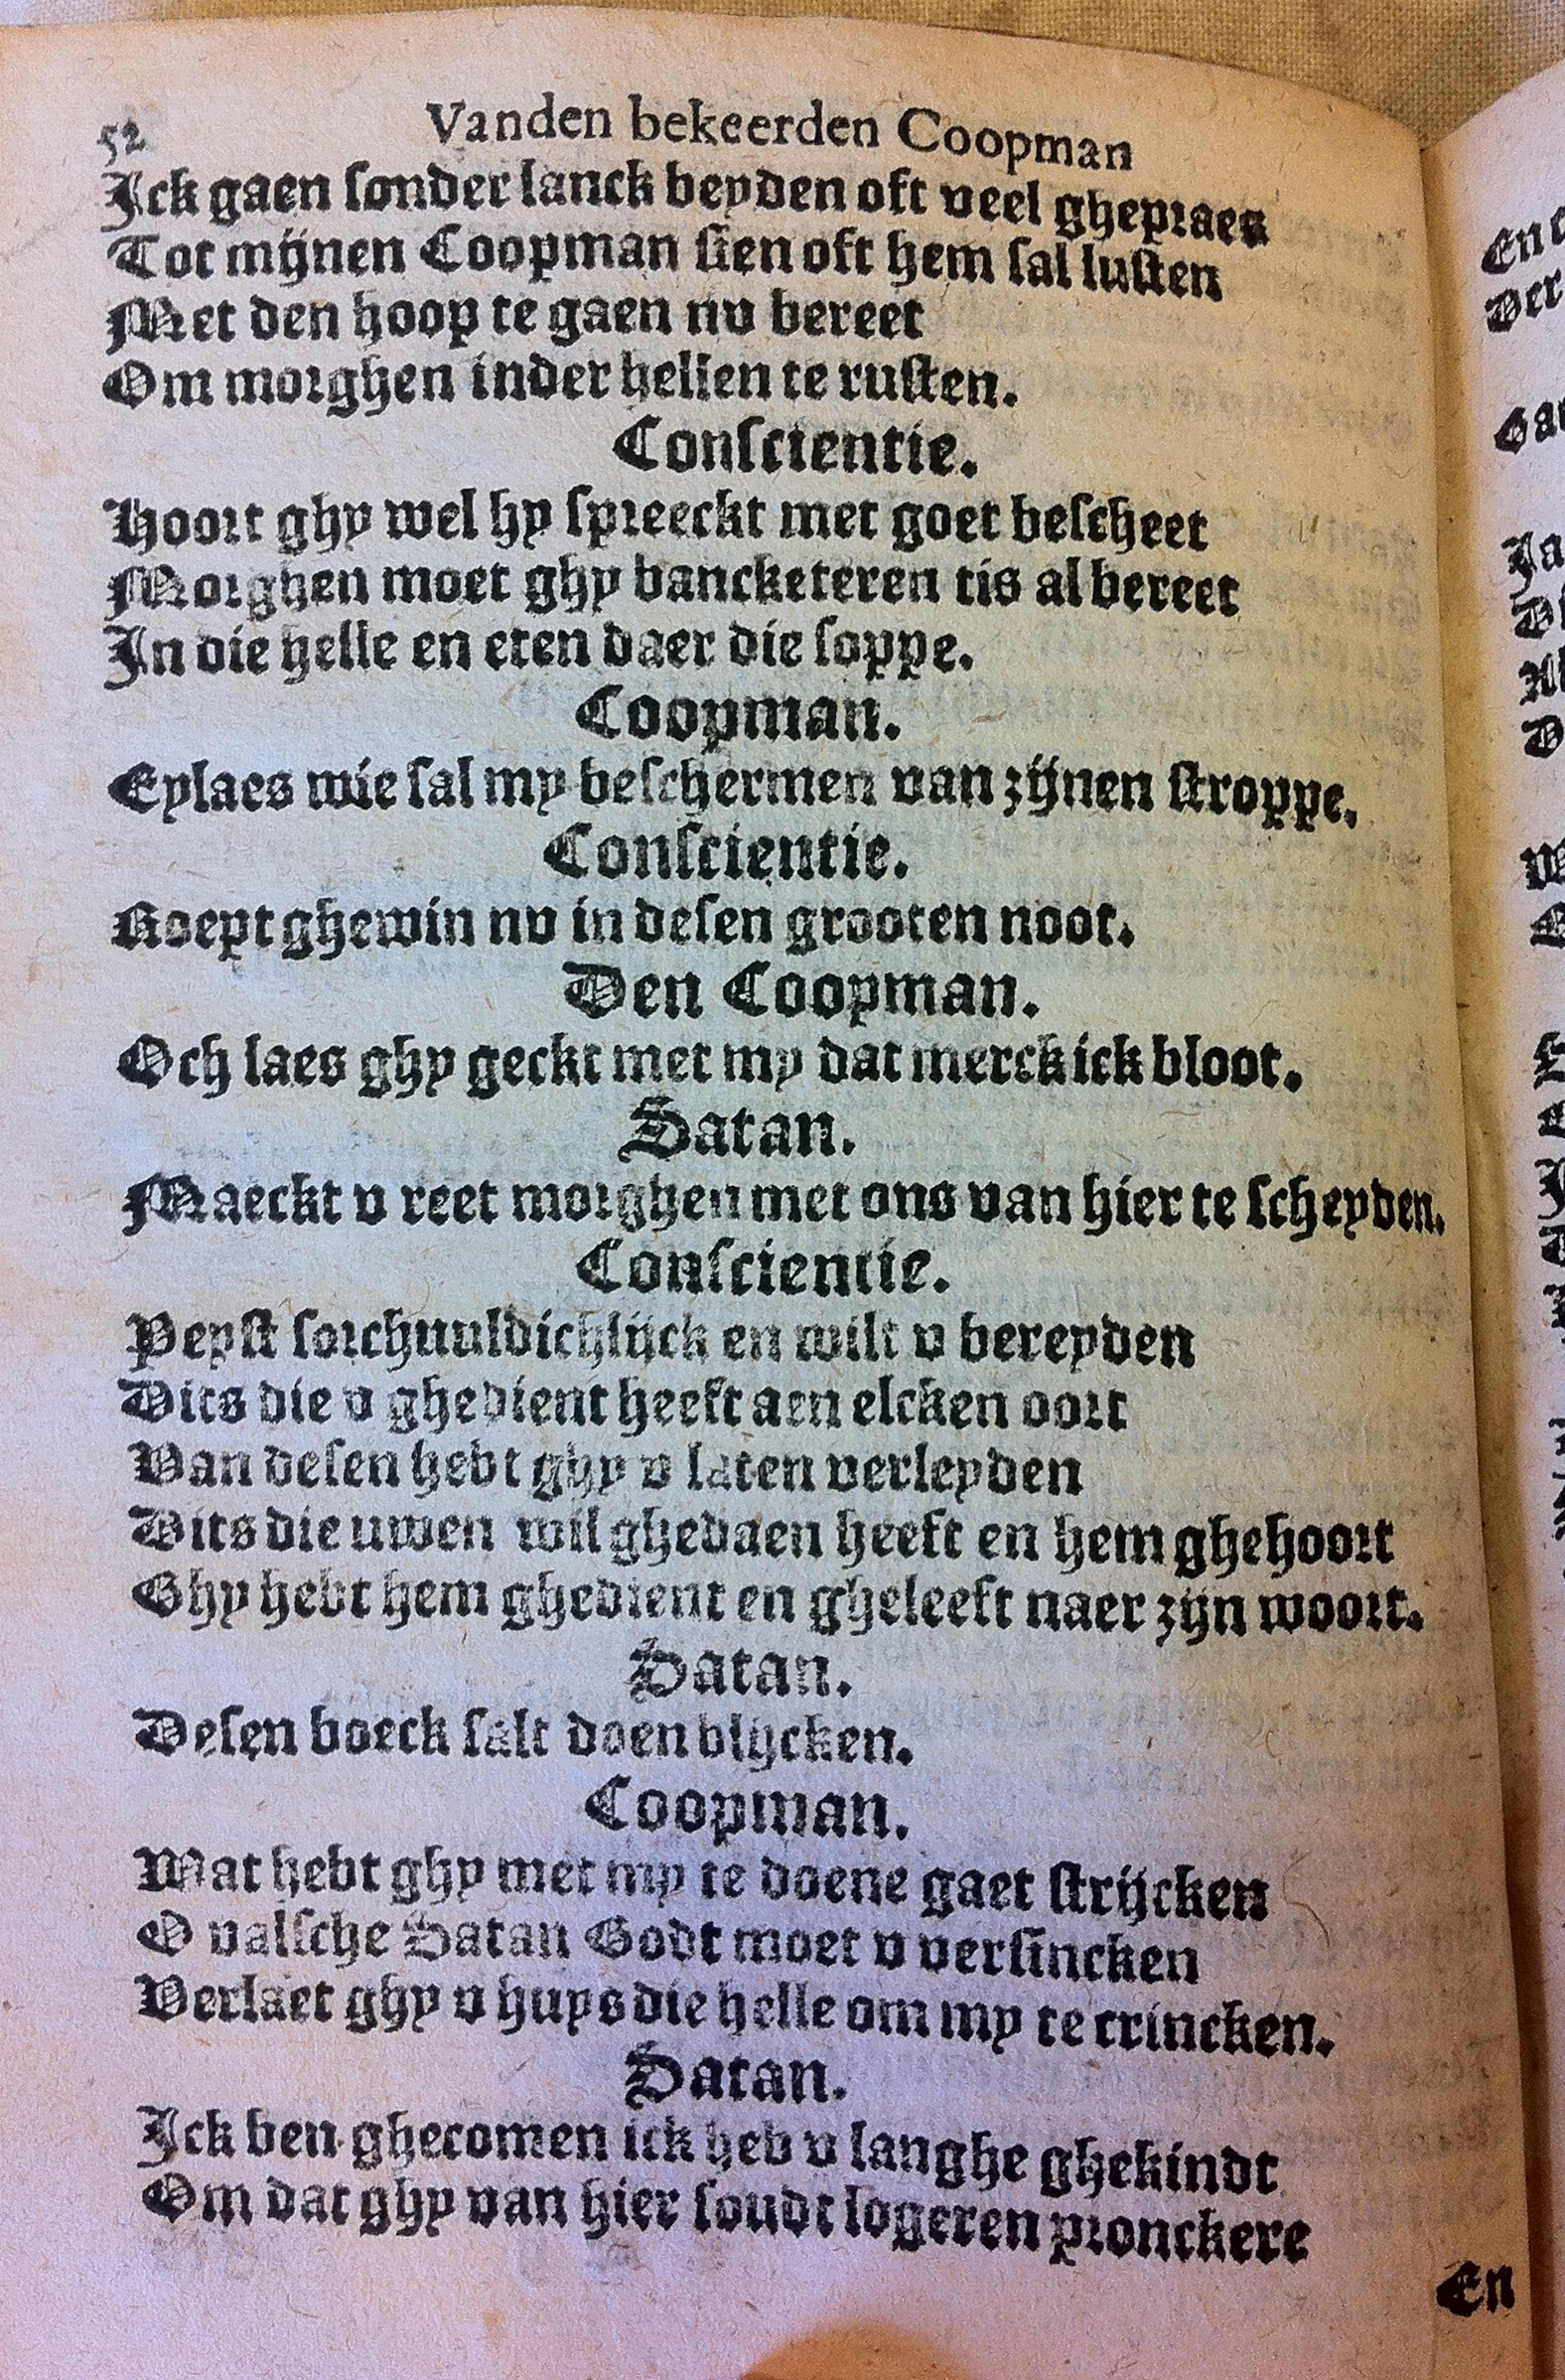 52 Vanden bekeerden Coopman
Ick gaen sonder lanck beyden oft veel ghepraes
Tot mijnen Coopman sien oft hem sal lusten
Met den hoop te gaen nv bereet
Om morghen inder hellen te rusten.
Conscientie.
Hoort ghy wel hy spreeckt met goet bescheet
Morghen moet ghy bancketeren tis al bereet
In die helle en eten daer die soppe.
Coopman.
Eylaes wie sal my beschermen van zijnen stroppe.
Conscientie.
Roept ghewin nv in desen grooten noot.
Den Coopman.
Och laes ghy geckt met my dat merck ick bloot.
Satan.
Maeckt v reet morghen met ons van hier te scheyden.
Conscientie.
Peyst sorchuuldichlijck en wilt v bereyden
Dits die v ghedient heeft aen elcken oort
Van desen hebt ghy v laten verleyden
Dits die uwen wil ghedaen heeft en hem ghehoort
Ghy hebt hem ghedient en gheleeft naer zijn woort.
Satan.
Desen boeck salt doen blijcken.
Coopman.
Wat hebt ghy met my te doene gaet strijcken
O valsche Satan Godt moet v versincken
Verlaet ghy v huys die helle om my te crincken.
Satan.
Ick ben ghecomen ick heb v langhe ghekindt
Om dat ghy van hier soudt logeren pronckere
En
En
Der
Ga
Ja
D